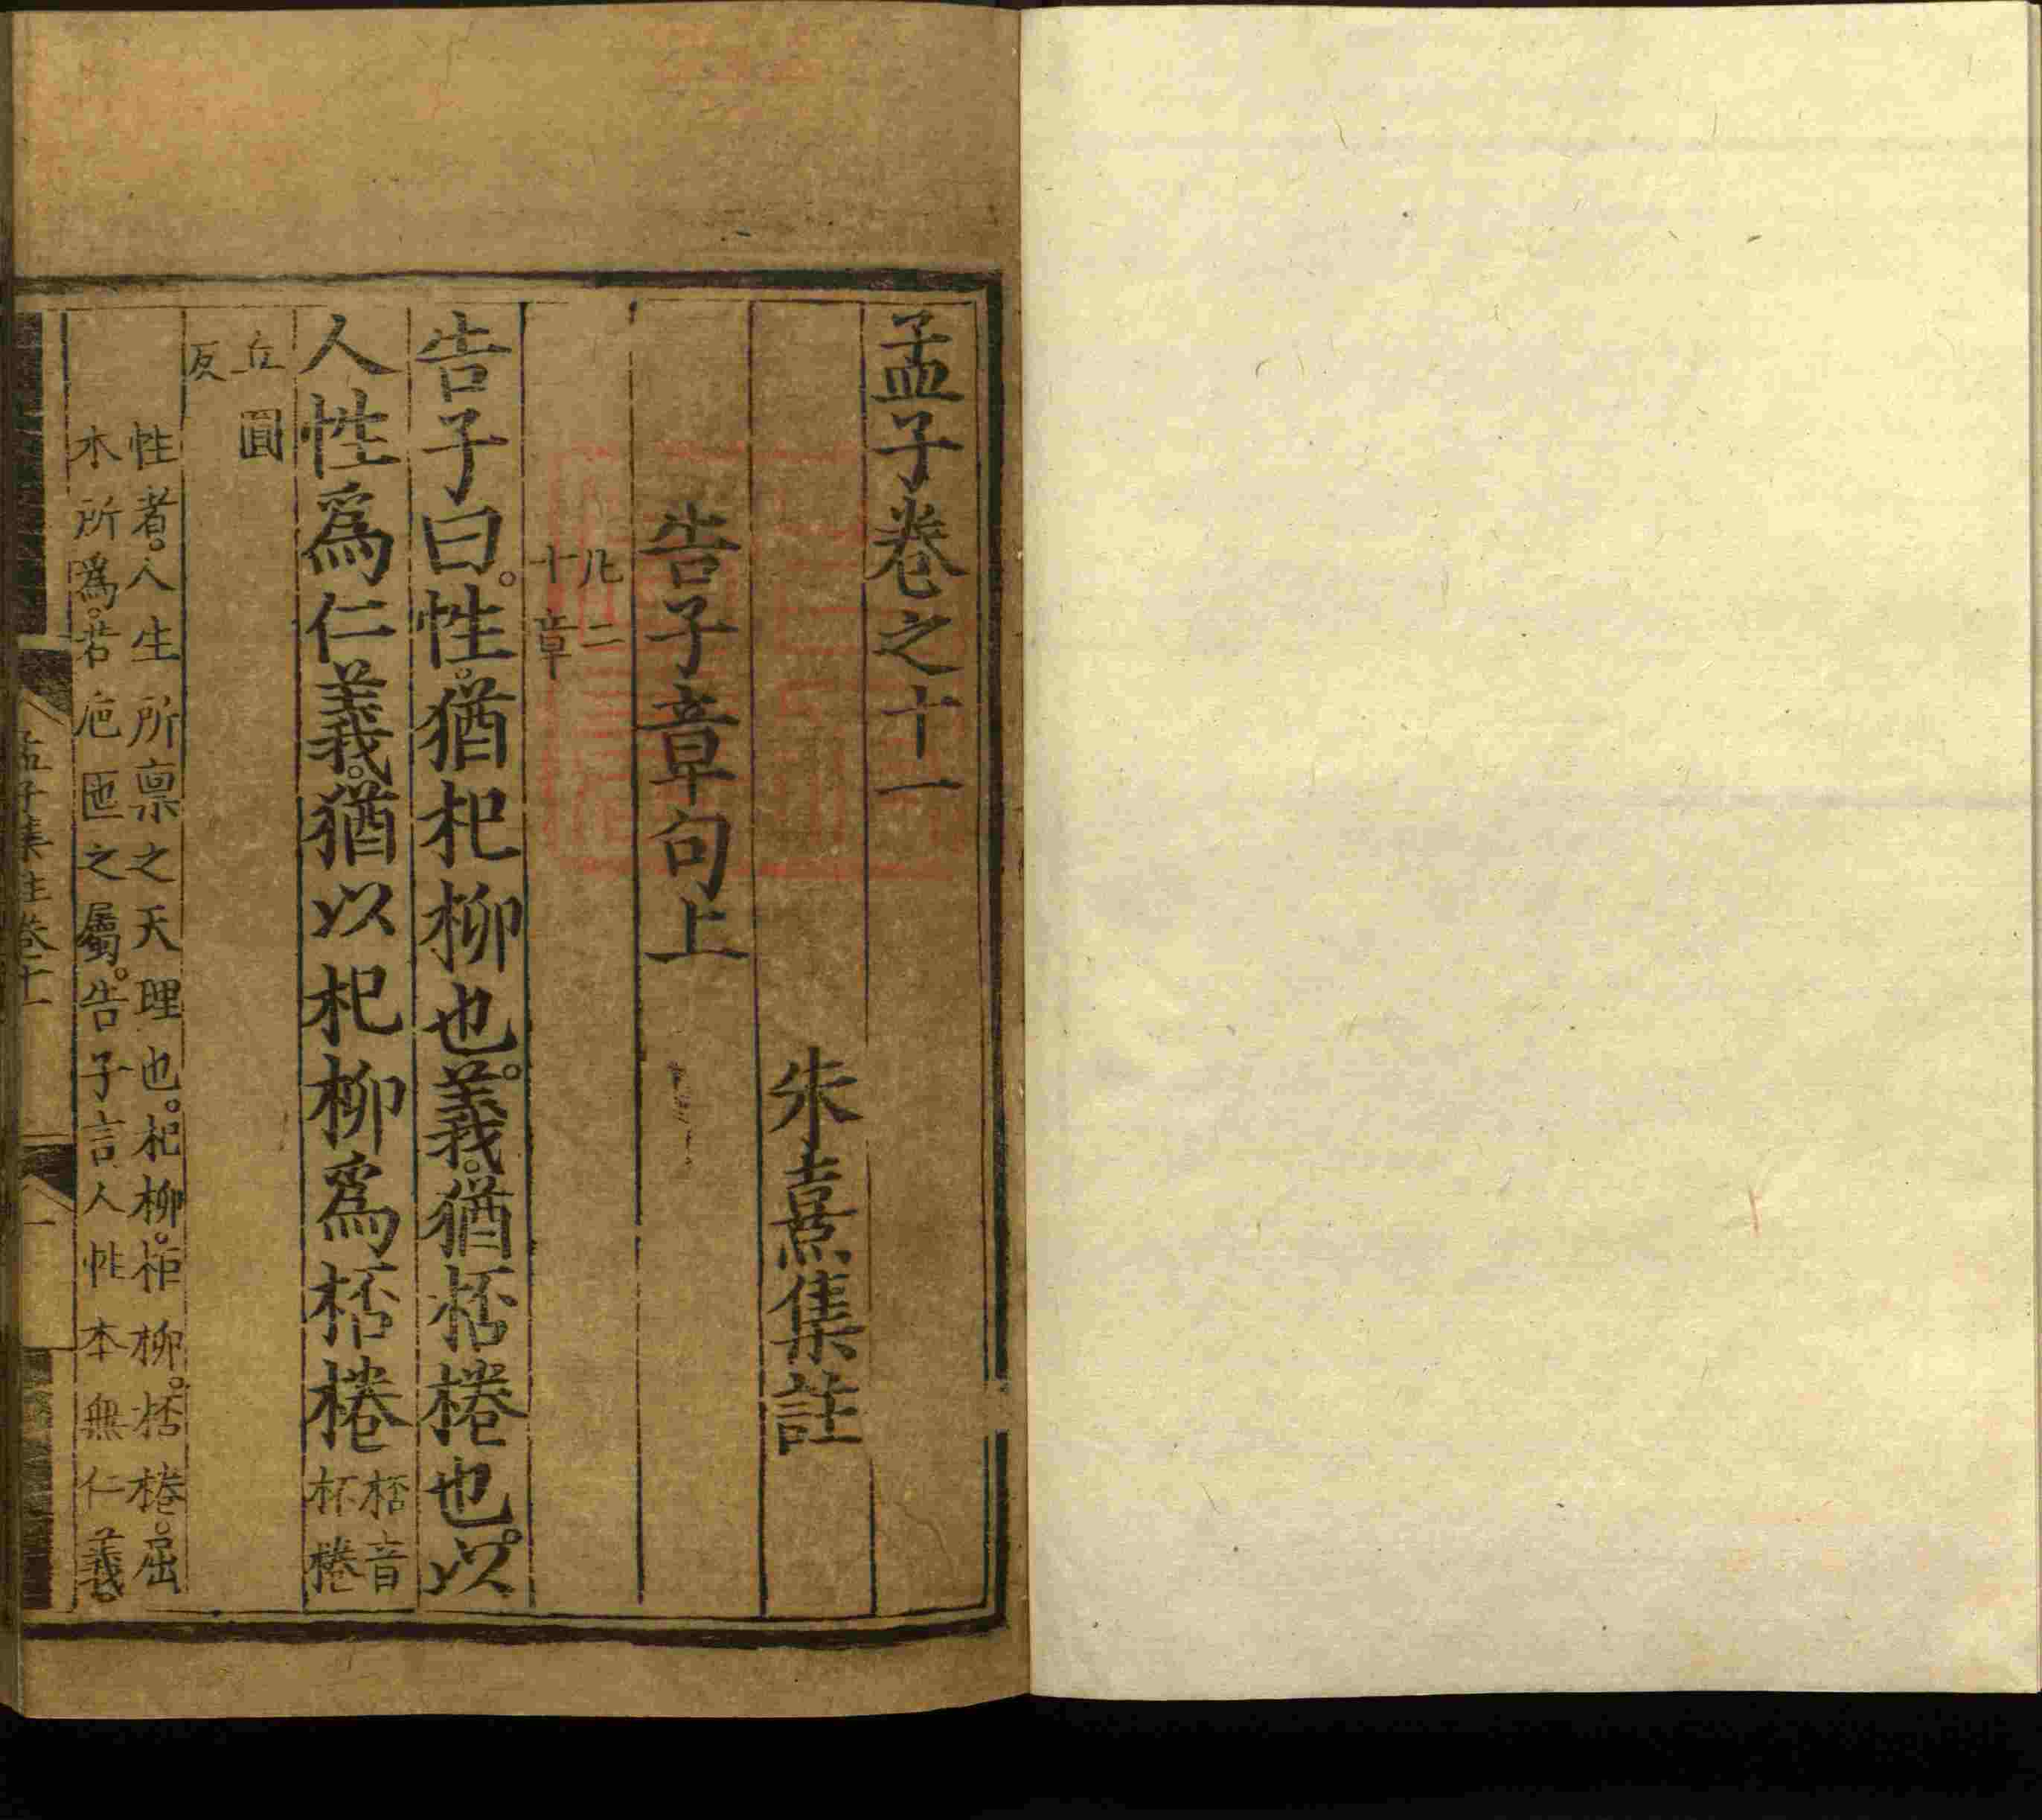 孟子卷之十一
朱熹集註
告子章句上
凡二
十章
告子曰。性。猶杞柳也。義。猶桮棬也。以
人性爲仁義。猶以杞柳爲桮棬
桮音
杯棬
丘圓
反
性者。人生所禀之天理也。杞柳。柜柳。桮棬。屈
木所爲。若巵匜之屬。告子言人性本無仁義。
孟子集註卷十一
一